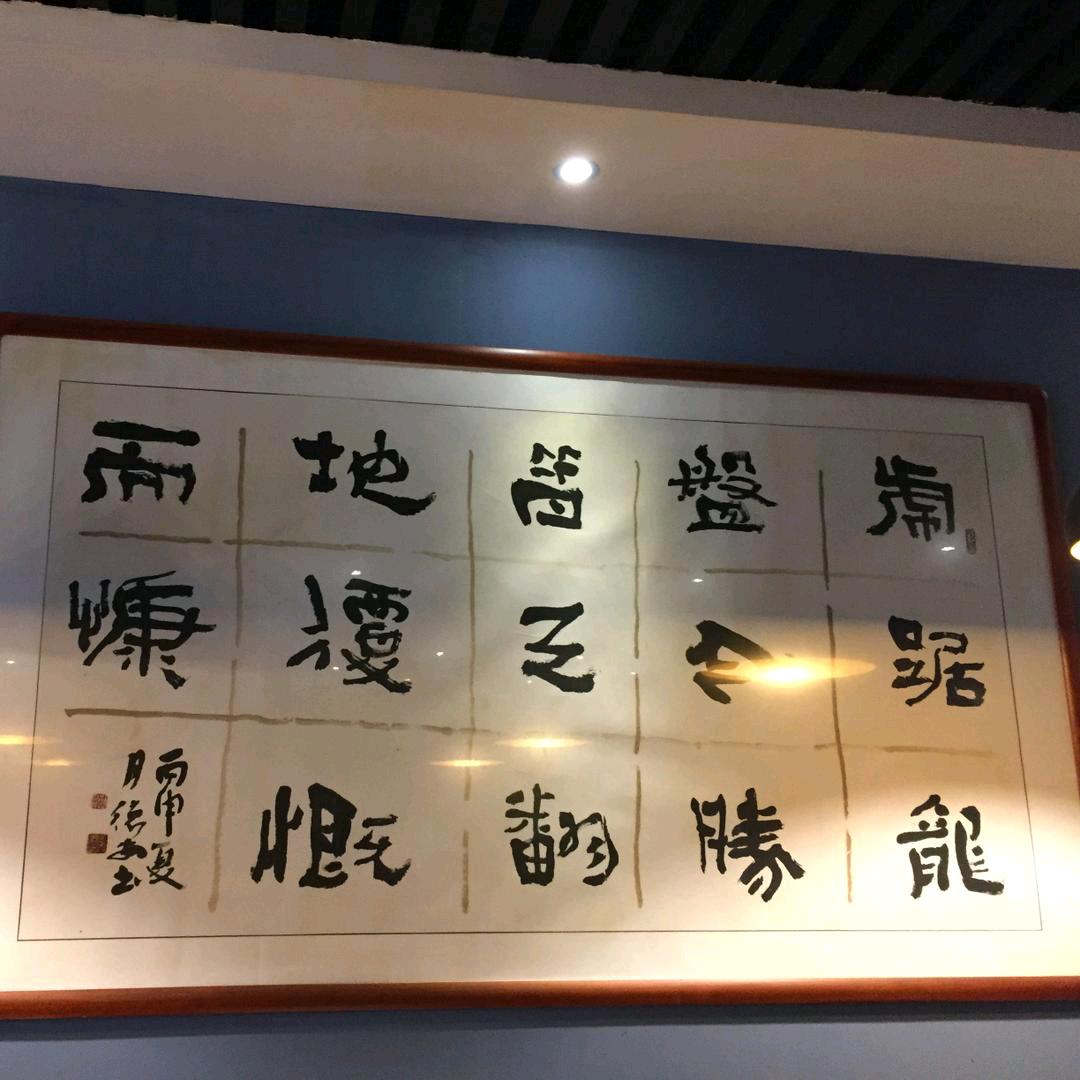 虎踞龍
盤今勝
昔天翻
地覆慨
而慷
丙申夏
月德书